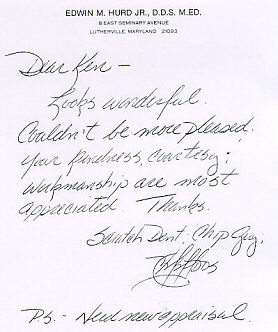 EDWIN M. HURD JR., D.D.S. M.ED.
8 EAST SEMINARY AVENUE
LUTHERVILLE, MARYLAND 21093
Dear Ken -
Looks wonderful.
Couldn't be more pleased.
Your kindness, courtesy &
workmanship are most
appreciated Thanks.
Scratch Dent, Chip Guy,
P.S. - Need new appraisal.